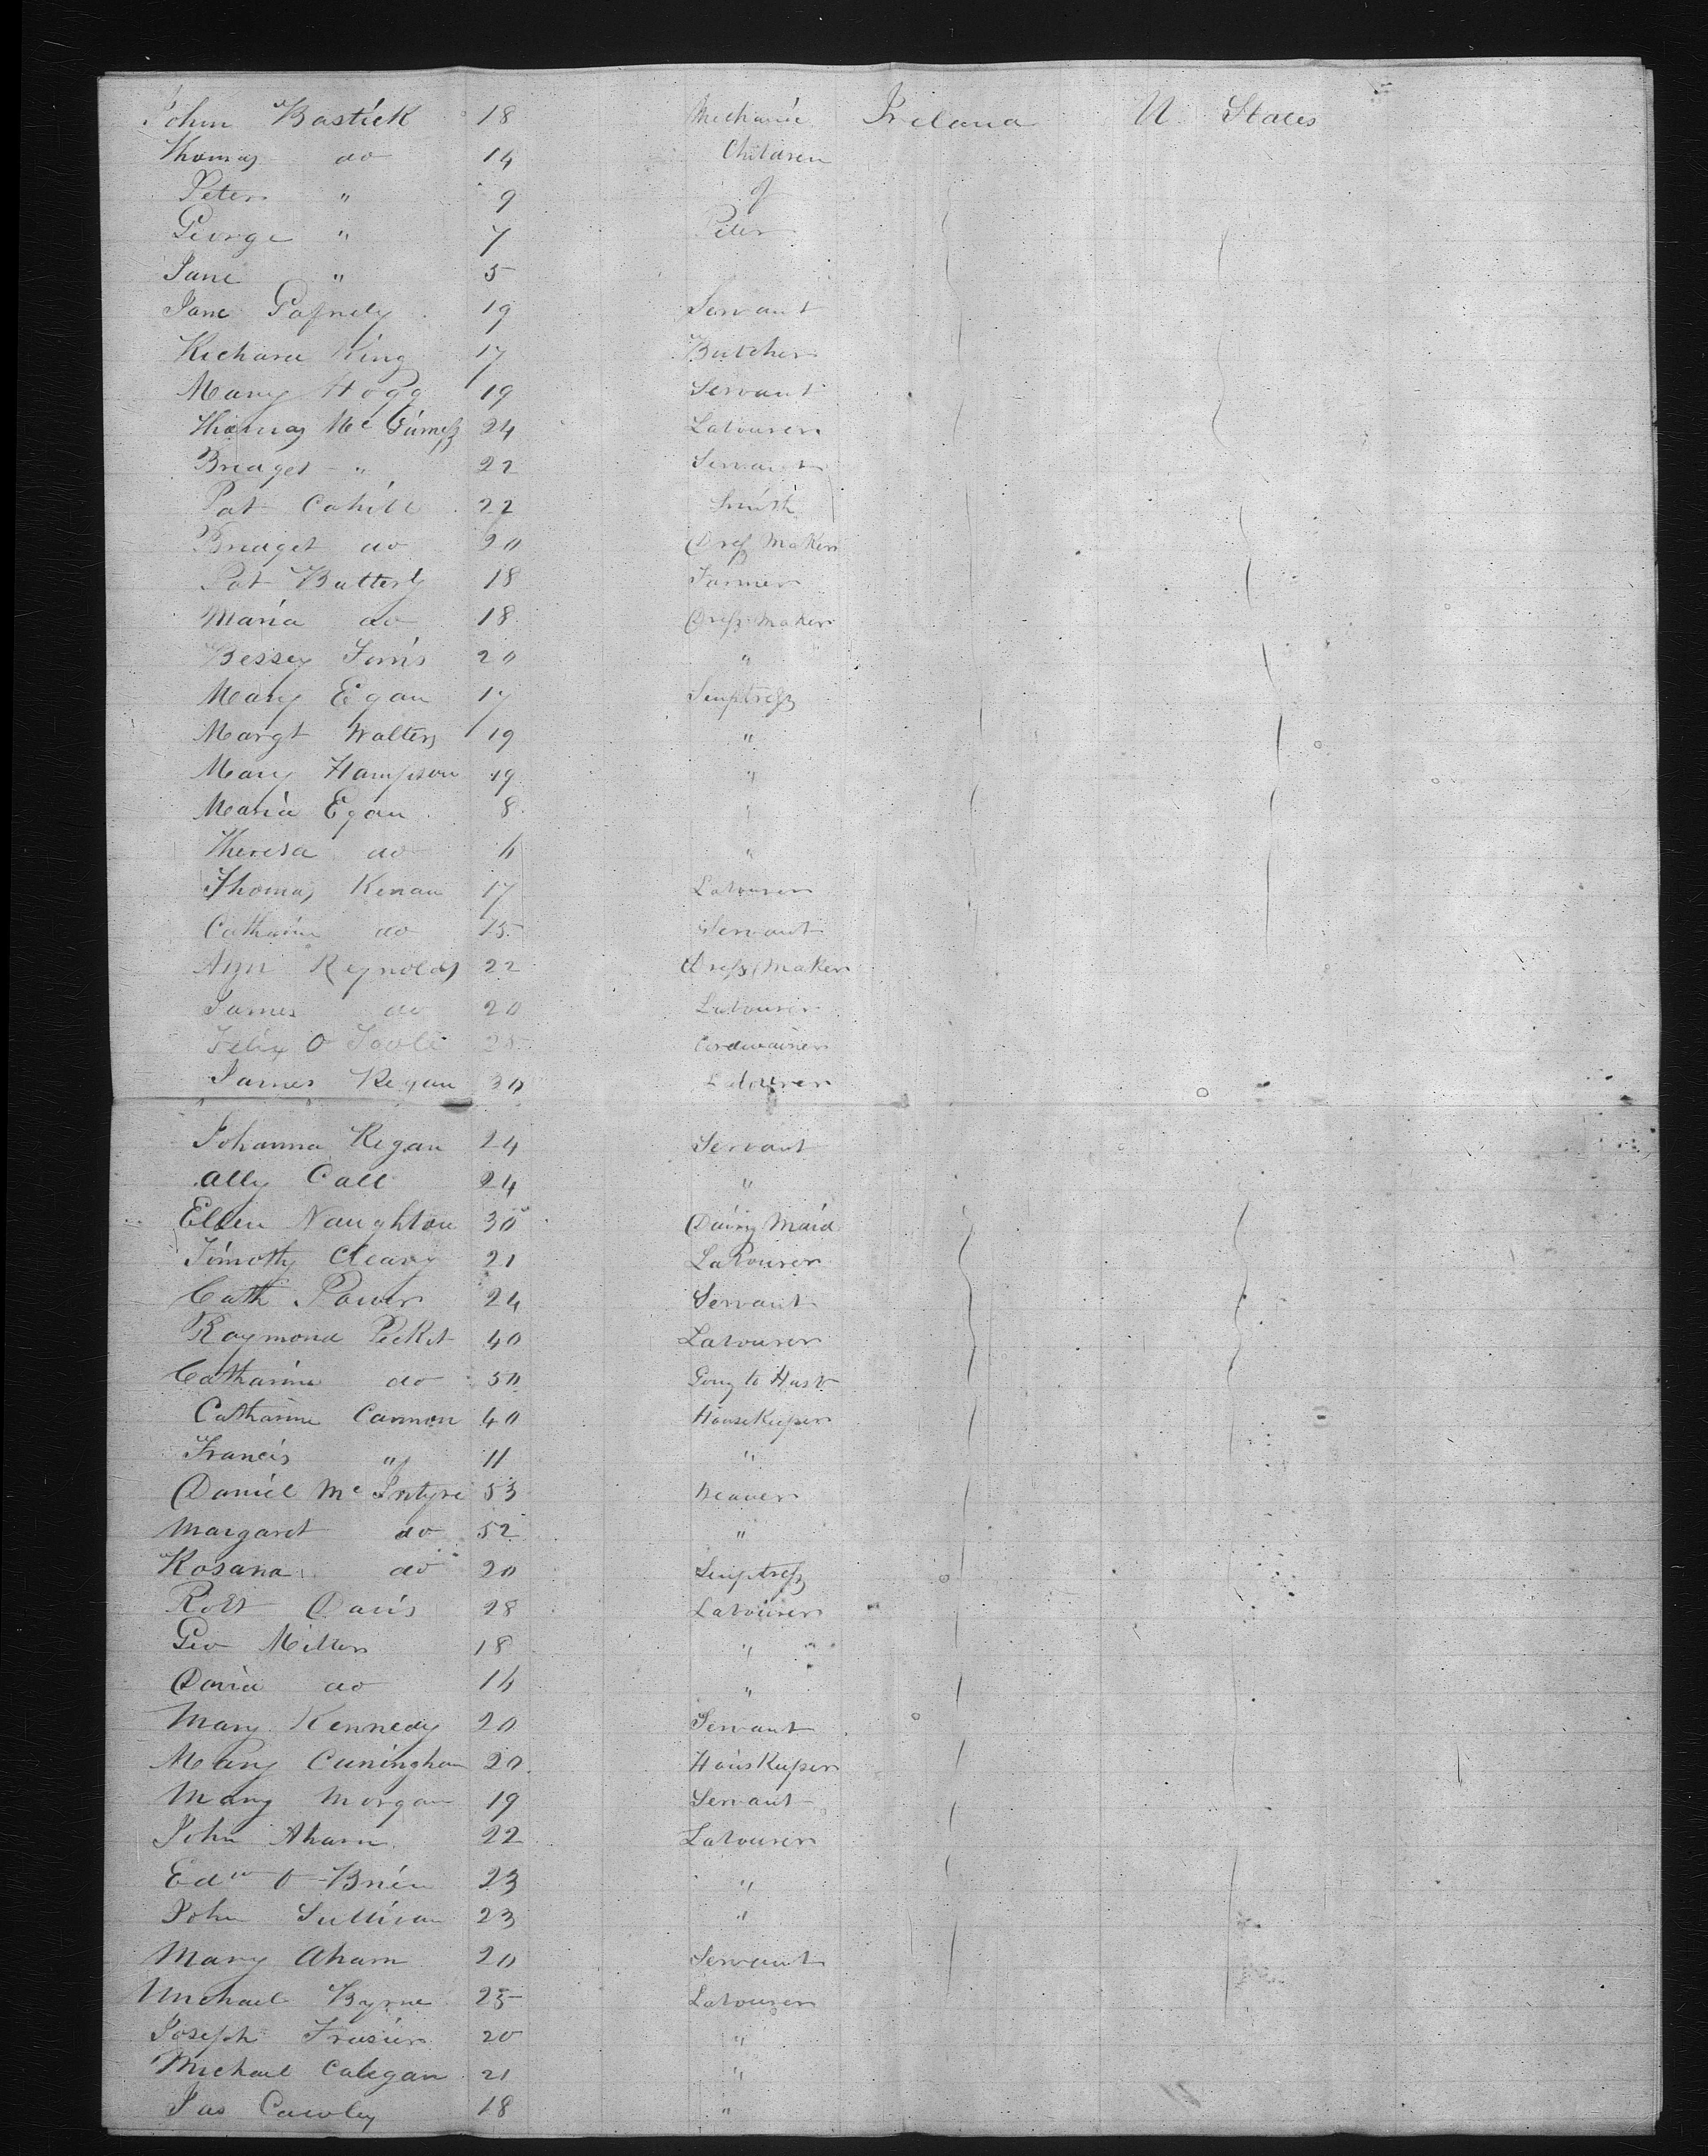 John Bastick 18 Mechanic Ireland U States
Thomas do 14 Children
Peter " 9 of
George " 7 Peter
Jane " 5
Jane Gafnely 19 Servant
Richard King 17 Butcher
Mary Hogg 19 Servant
Thomas Mc 24 Labourer
Bridget " 22 Servant
Pat Cahill 22 Smith
Bridget do 20 Dress Maker
Pat Butterly 18 Farmer
Maria do 18 Dress Maker
Bessey 20 "
Mary Egan 17 Semptress
Margt Walters 19 "
Mary Hampson 19 "
Maria Egan 8 "
Theresa do 6 "
Thomas Kenan 17 Labourer
Catharine do 15 Servant
Ann Reynolds 22 Dress Maker
James do 20 Labourer
Felix O Toole 25 Cordwainer
James Regan 30 Labourer
Johanna Regan 24 Servant
Ally Call 24 "
Ellen Naughton 30 Dairy Maid
Timothy Cleary 21 Labourer
Cath Power 24 Servant
Raymond Picket 40 Labourer
Catharine do 50 Going to Husb
Catharine Cannon 40 HouseKeeper
Francis " 11 "
Daniel Mc Intyre 53 Weaver
Margaret do 52 "
Rosana do 20 Semptress
Robt Davis 28 Labourer
Geo Miller 18 "
David do 16 "
Mary Kennedy 20 Servant
Mary Cuningham 20 HousKeeper
Mary Morgan 19 Servant
John Aharn 22 Labourer
Edw O Brien 23 "
John Sullivan 23 "
Mary Aharn 20 Servant
Michael Byrne 25 Labourer
Joseph Frasier 20 "
Michael Calegan 21 "
Jas Cawley 18 "